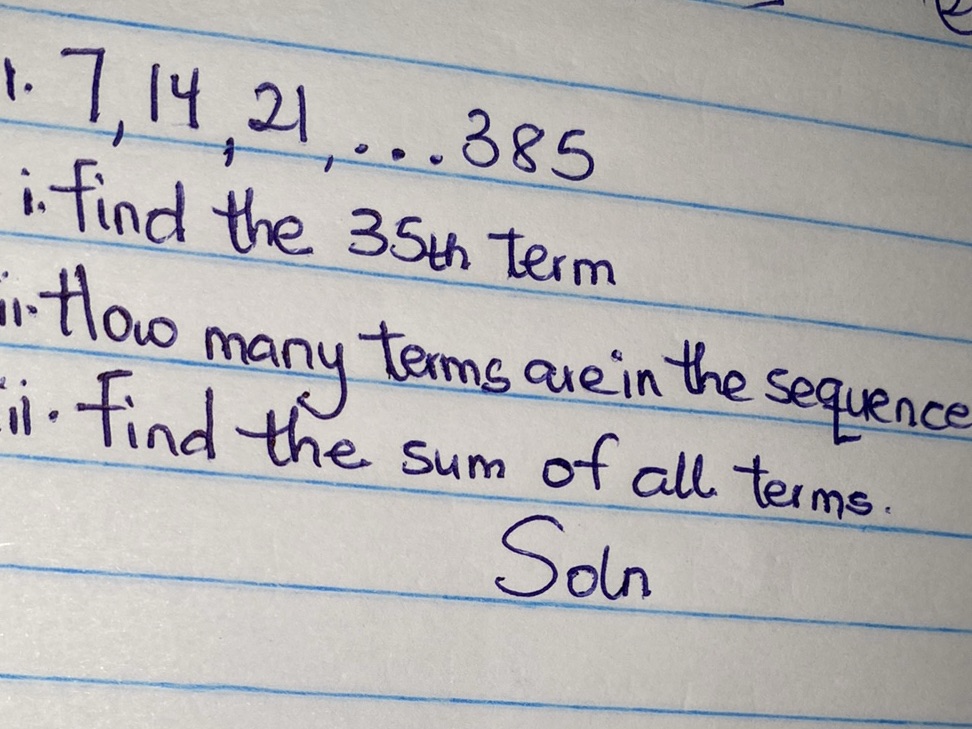 1. 7, 14, 21, ... 385
i. find the 35th term
ii. How many terms are in the sequence
iii. Find the sum of all terms.
Soln